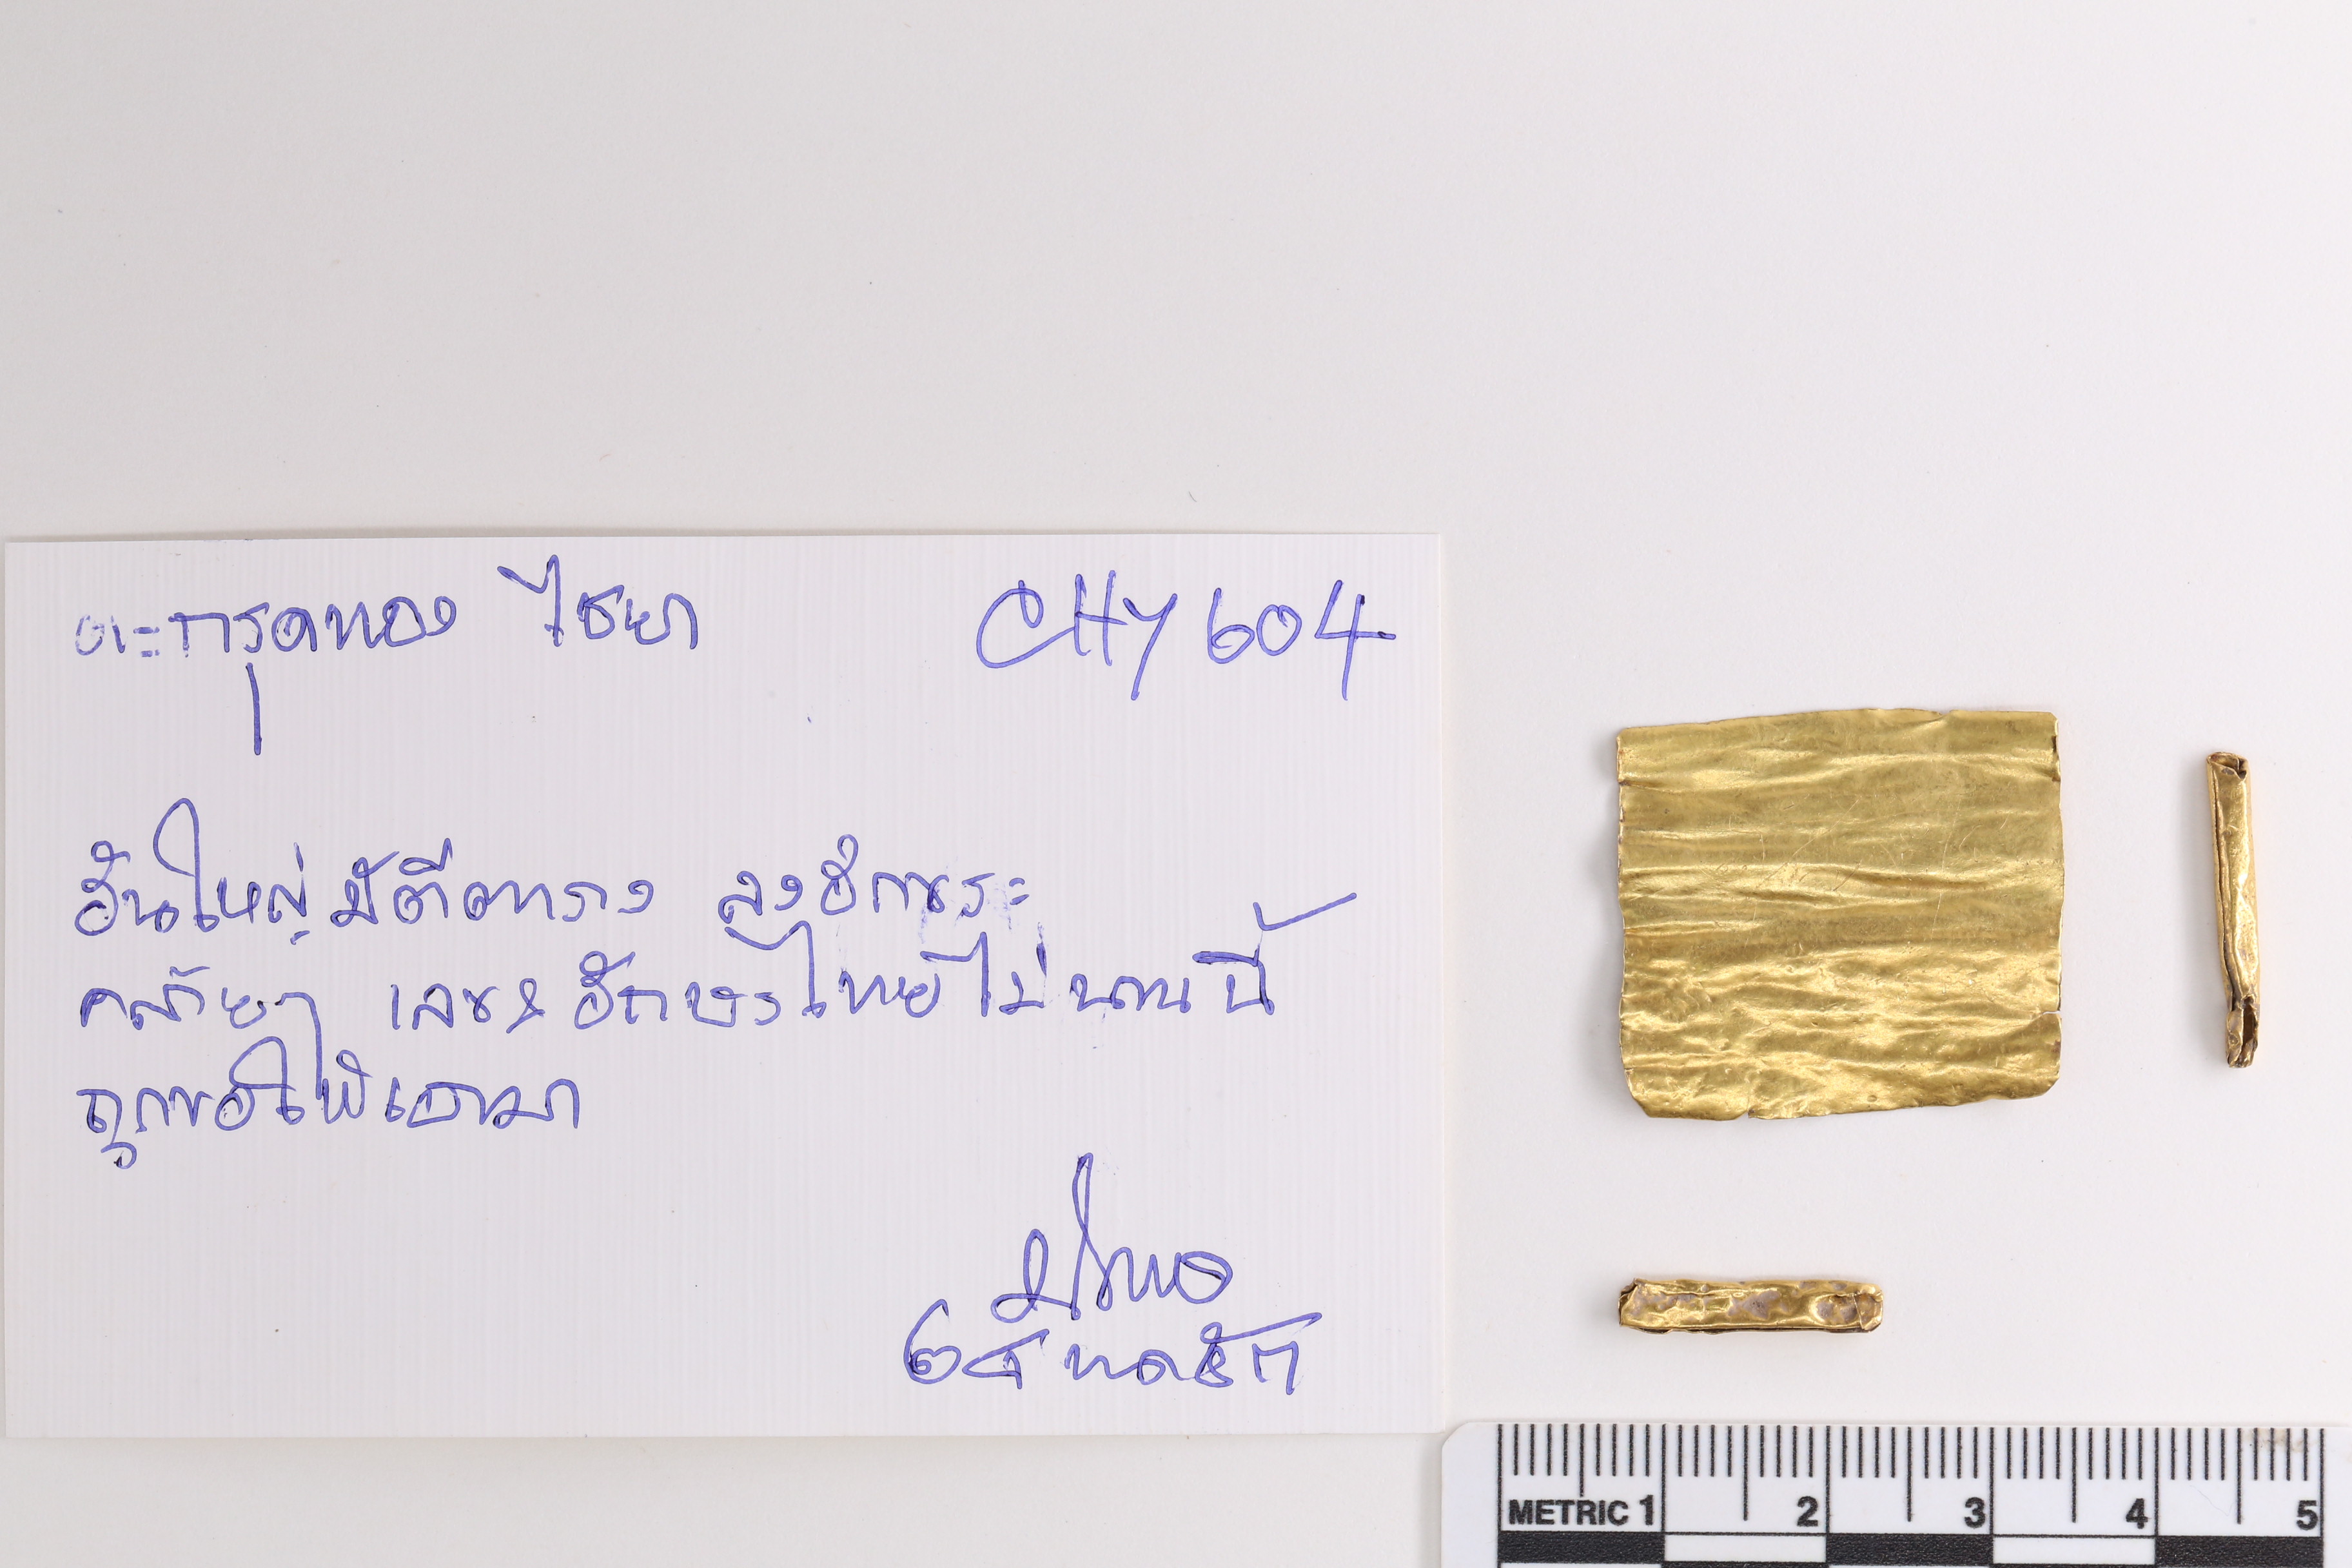 ตะกรุดทอง ไชยา CHY 604
อันใหญ่ มีตีตาราง ลงอักขระ
คล้ายๆ เลข๑ อักษรไทย ไม่นานนี้
ถูกขอให้เอามา
๖๕
METRIC 1 2 3 4 5